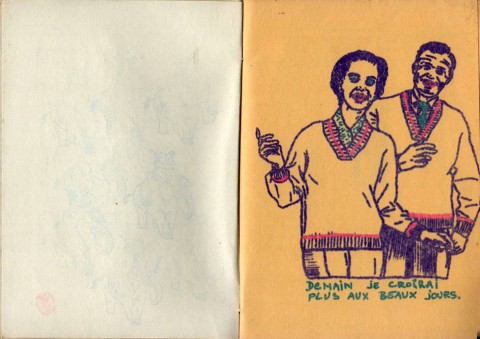 DEMAIN JE CROIRAI
PLUS AUX BEAUX JOURS.